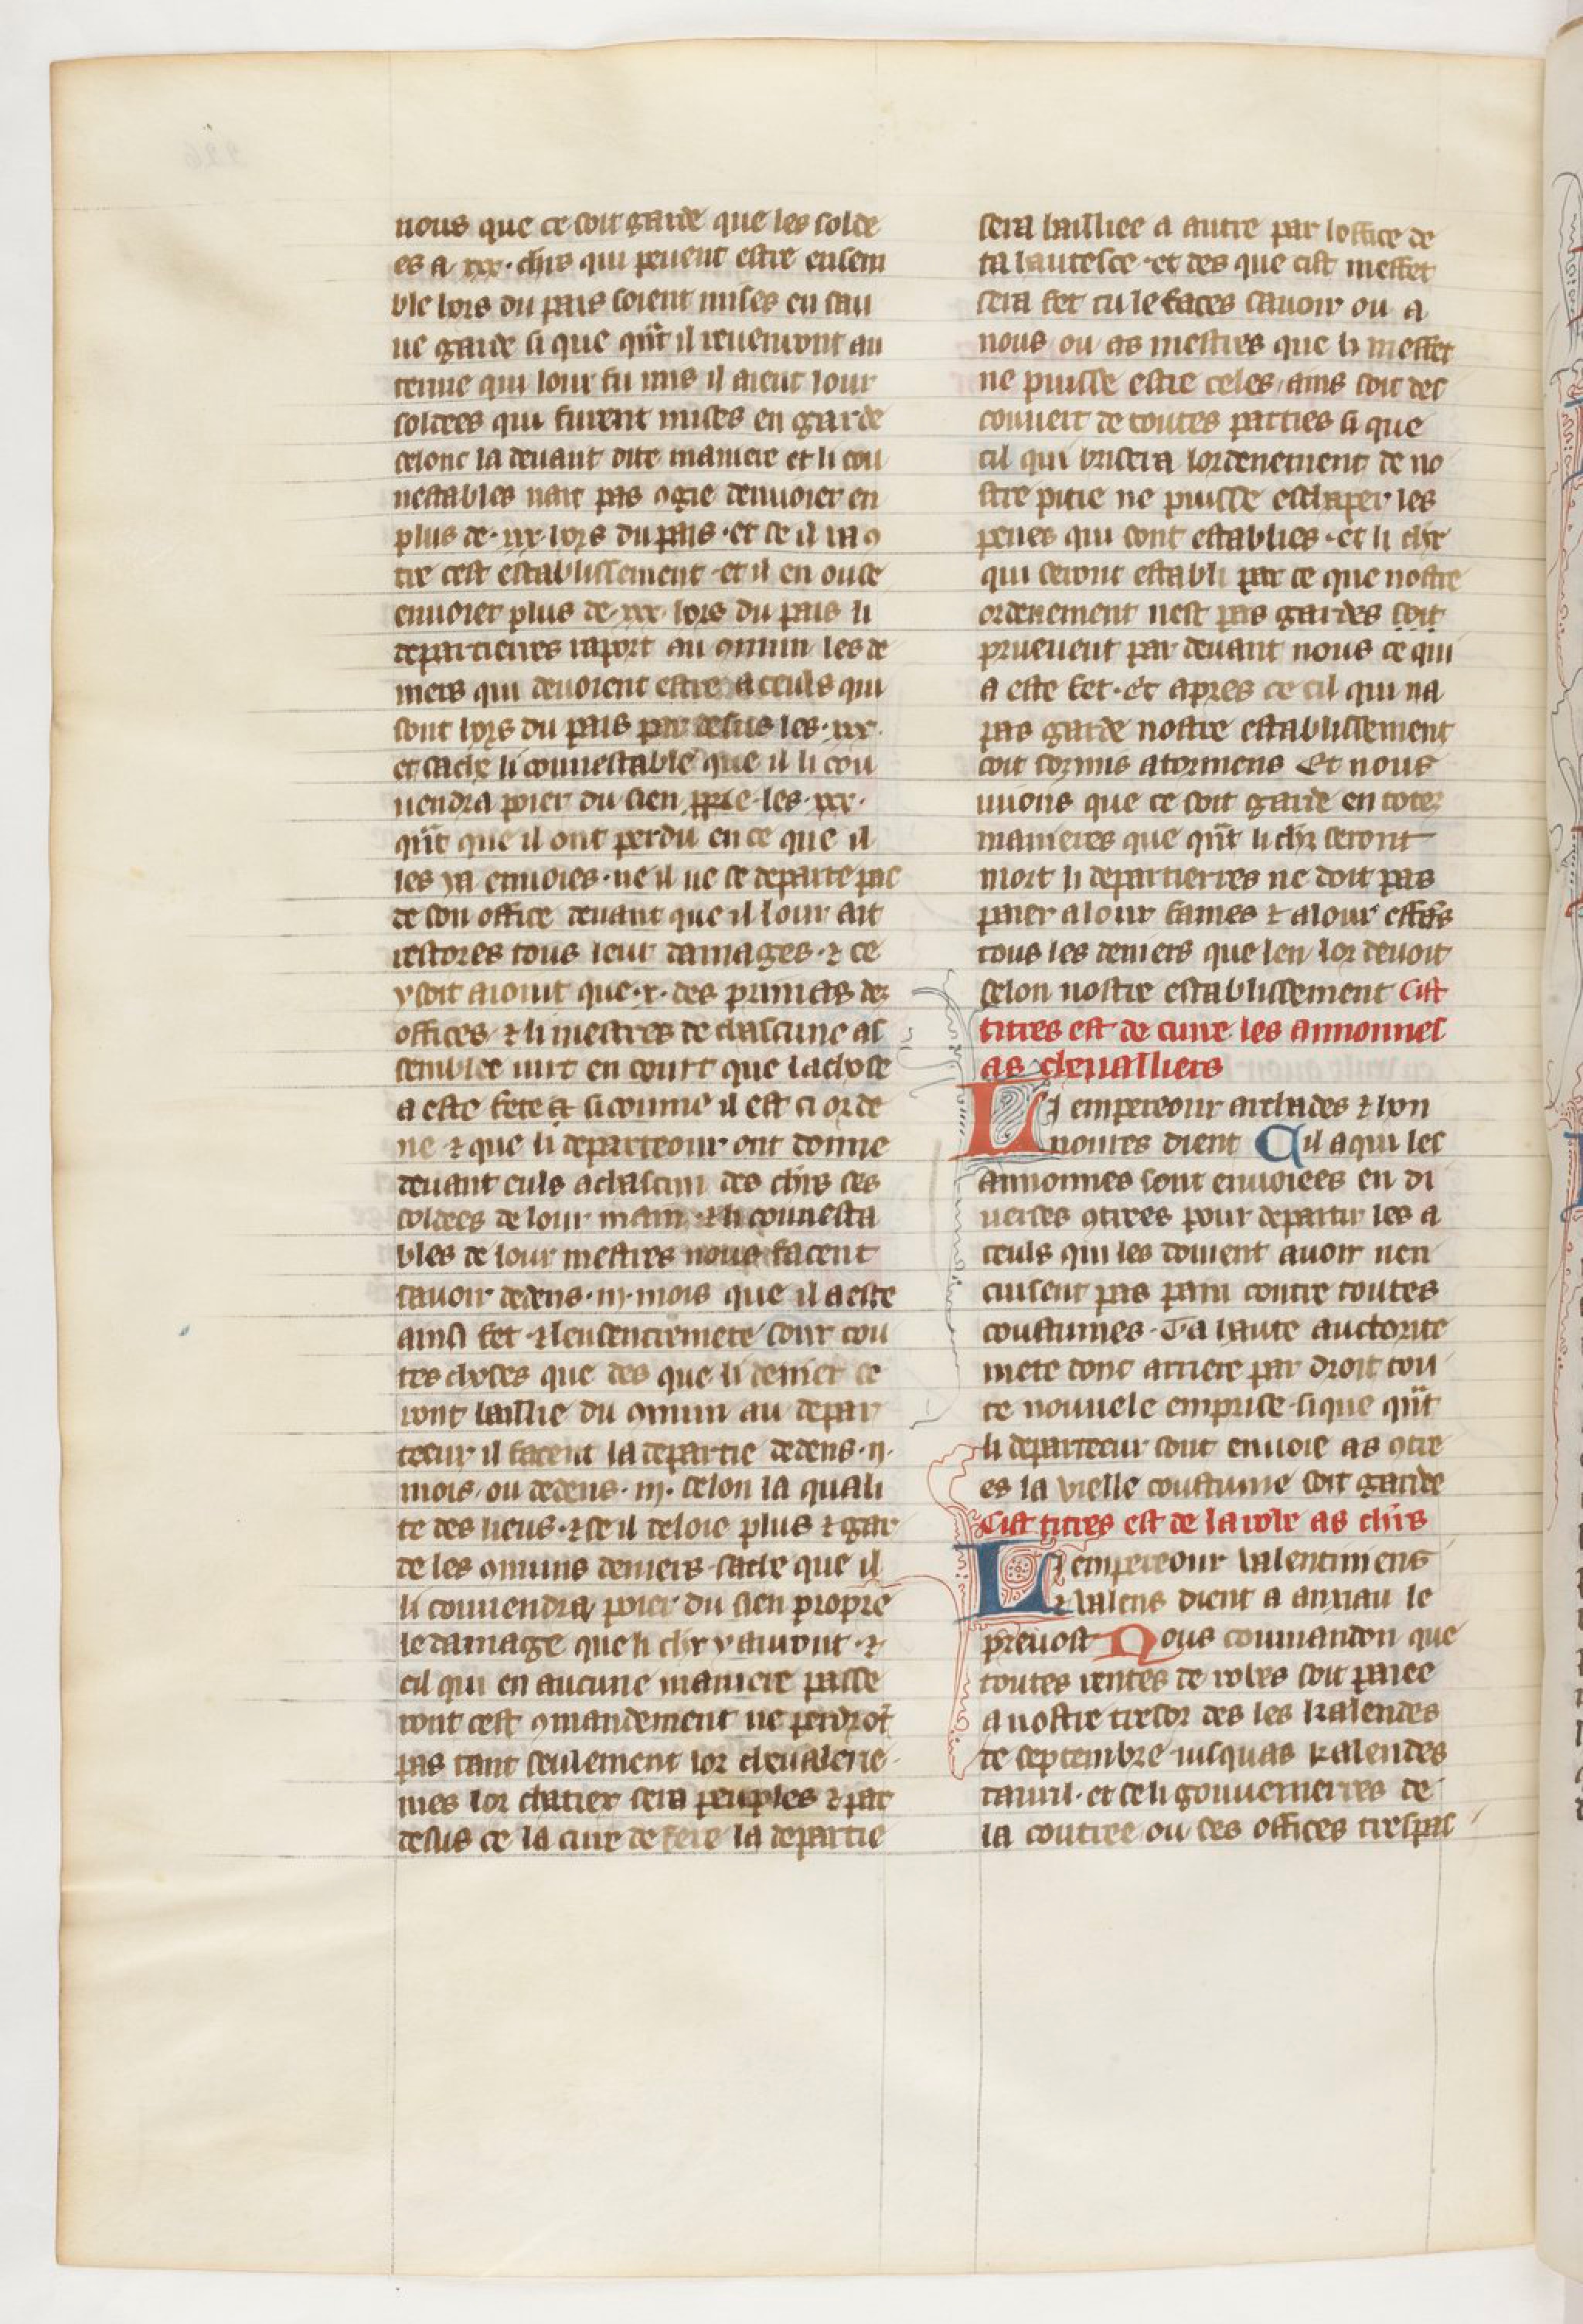 nous que ce soit garde que les solde
es a .xxx. chrs qui peuent estre ensem
ble hors du pais soient mises en sau
ue garde si que qnt il reuenront au
terme qui lour fu mis il aient lour
soldees qui furent mises en garde
selonc la deuant dite maniere et li con
nestables nait pas ꝯgie denuoier en
plus de .xxx. hors du pais . et se il va ꝯ
tre cest establissement . et il en ouse
enuoier plus de .xxx. hors du pais li
departierres raport au ꝯmun les de
niers qui deuoient estre a ceuls qui
sont hors du pais par desus les .xxx.
et sache li connestable que il li con
uendra poier du sien ꝓpre les .xxx.
qnt que il ont perdu en ce que il
les ya enuoies . ne il ne se departe pas
de son office deuant que il lour ait
restores tous leur damages . ⁊ ce
y soit aiouit que .x. des primas des
offices ⁊ li mestres de chascune as
semblee iurt en court que la chose
a este fete si comme il est ci orde
ne ⁊ que li departeour ont donne
deuant euls a chascun des chrs ses
soldees de lour main ⁊ li connesta
bles de lour mestres nous facent
sauoir dedens .iii. mois que il a este
ainsi fet . ⁊ lensentiremete sour tou
tes choses que des que li denier se
ront baillie du ꝯmun au depar
teeur il facent la departie dedens .ii.
mois . ou dedens .iii. selon la quali
te des lieus . ⁊ se il deloie plus ⁊ gar
de les ꝯmuns deniers sache que il
li conuendra poier du sien propre
le damage que li chr y auront . ⁊
cil qui en aucune maniere passe
ront cest ꝯmandement ne perdrot
pas tant seulement lor cheualerie
mes lor chatiex sera peuples ⁊ par
desus ce la cure de fere la departie
sera bailliee a autre par loffice de
ta hautesce . et des que cist meffet
sera fet tu le faces sauoir ou a
nous ou as mestres que li meffet
ne puisse estre celes ains soit des
couuert de toutes parties si que
cil qui brisera lordenement de no
stre pitie ne puisse eschaper les
penes qui sont establies . et li chr
qui seront establi par ce que nostre
ordenement nest pas gardes soit
prueuent par deuant nous ce qui
a este fet . Et apres ce cil qui na
pas garde nostre establissement
soit sozmis a tormens Et nous
uuons que ce soit garde en totes
manieres que qnt li chr seront
mort li departierres ne doit pas
paier a lour fames ⁊ a lour effas
tous les deniers que len lor deuoit
selon nostre establissement Cist
titres est de cuire les annonnes
as cheualliers
Li empereour archades ⁊ hon
noures dient Cil a qui les
annonnes sont enuoiees en di
uerses ꝯtrees pour departir les a
ceuls qui les doiuent auoir nen
cuisent pas pain contre toutes
coustumes . Ta haute auctorite
mete donc arriere par droit tou
te nouuele emprise . si que qnt
li departeeur sont enuoie as ꝯtre
es la vielle coustume soit gardee
Cist titres est de la robe as chrs
Li empereour Valentiniens
⁊ valens dient a auxiau le
preuost Nous commandon que
toutes rentes de robes soit paiee
a nostre tresor des les kalendes
de septembre iusquas kalendes
dauril . et se li gouuernerres de
la coutree ou ses offices trespas